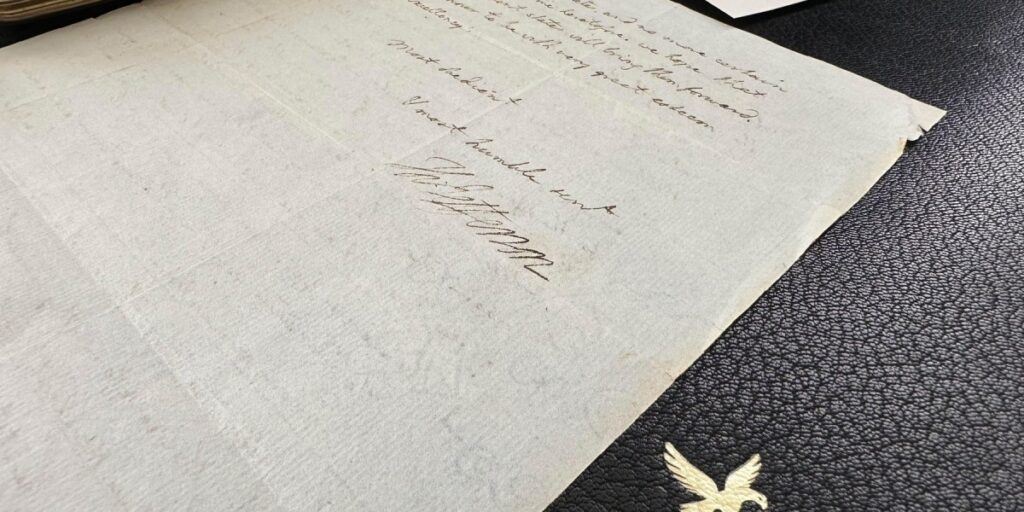 and no more certain
we hope that
date will bring them forward.
to be with very great esteem
most obedient
& most humble servt
Th: Jefferson